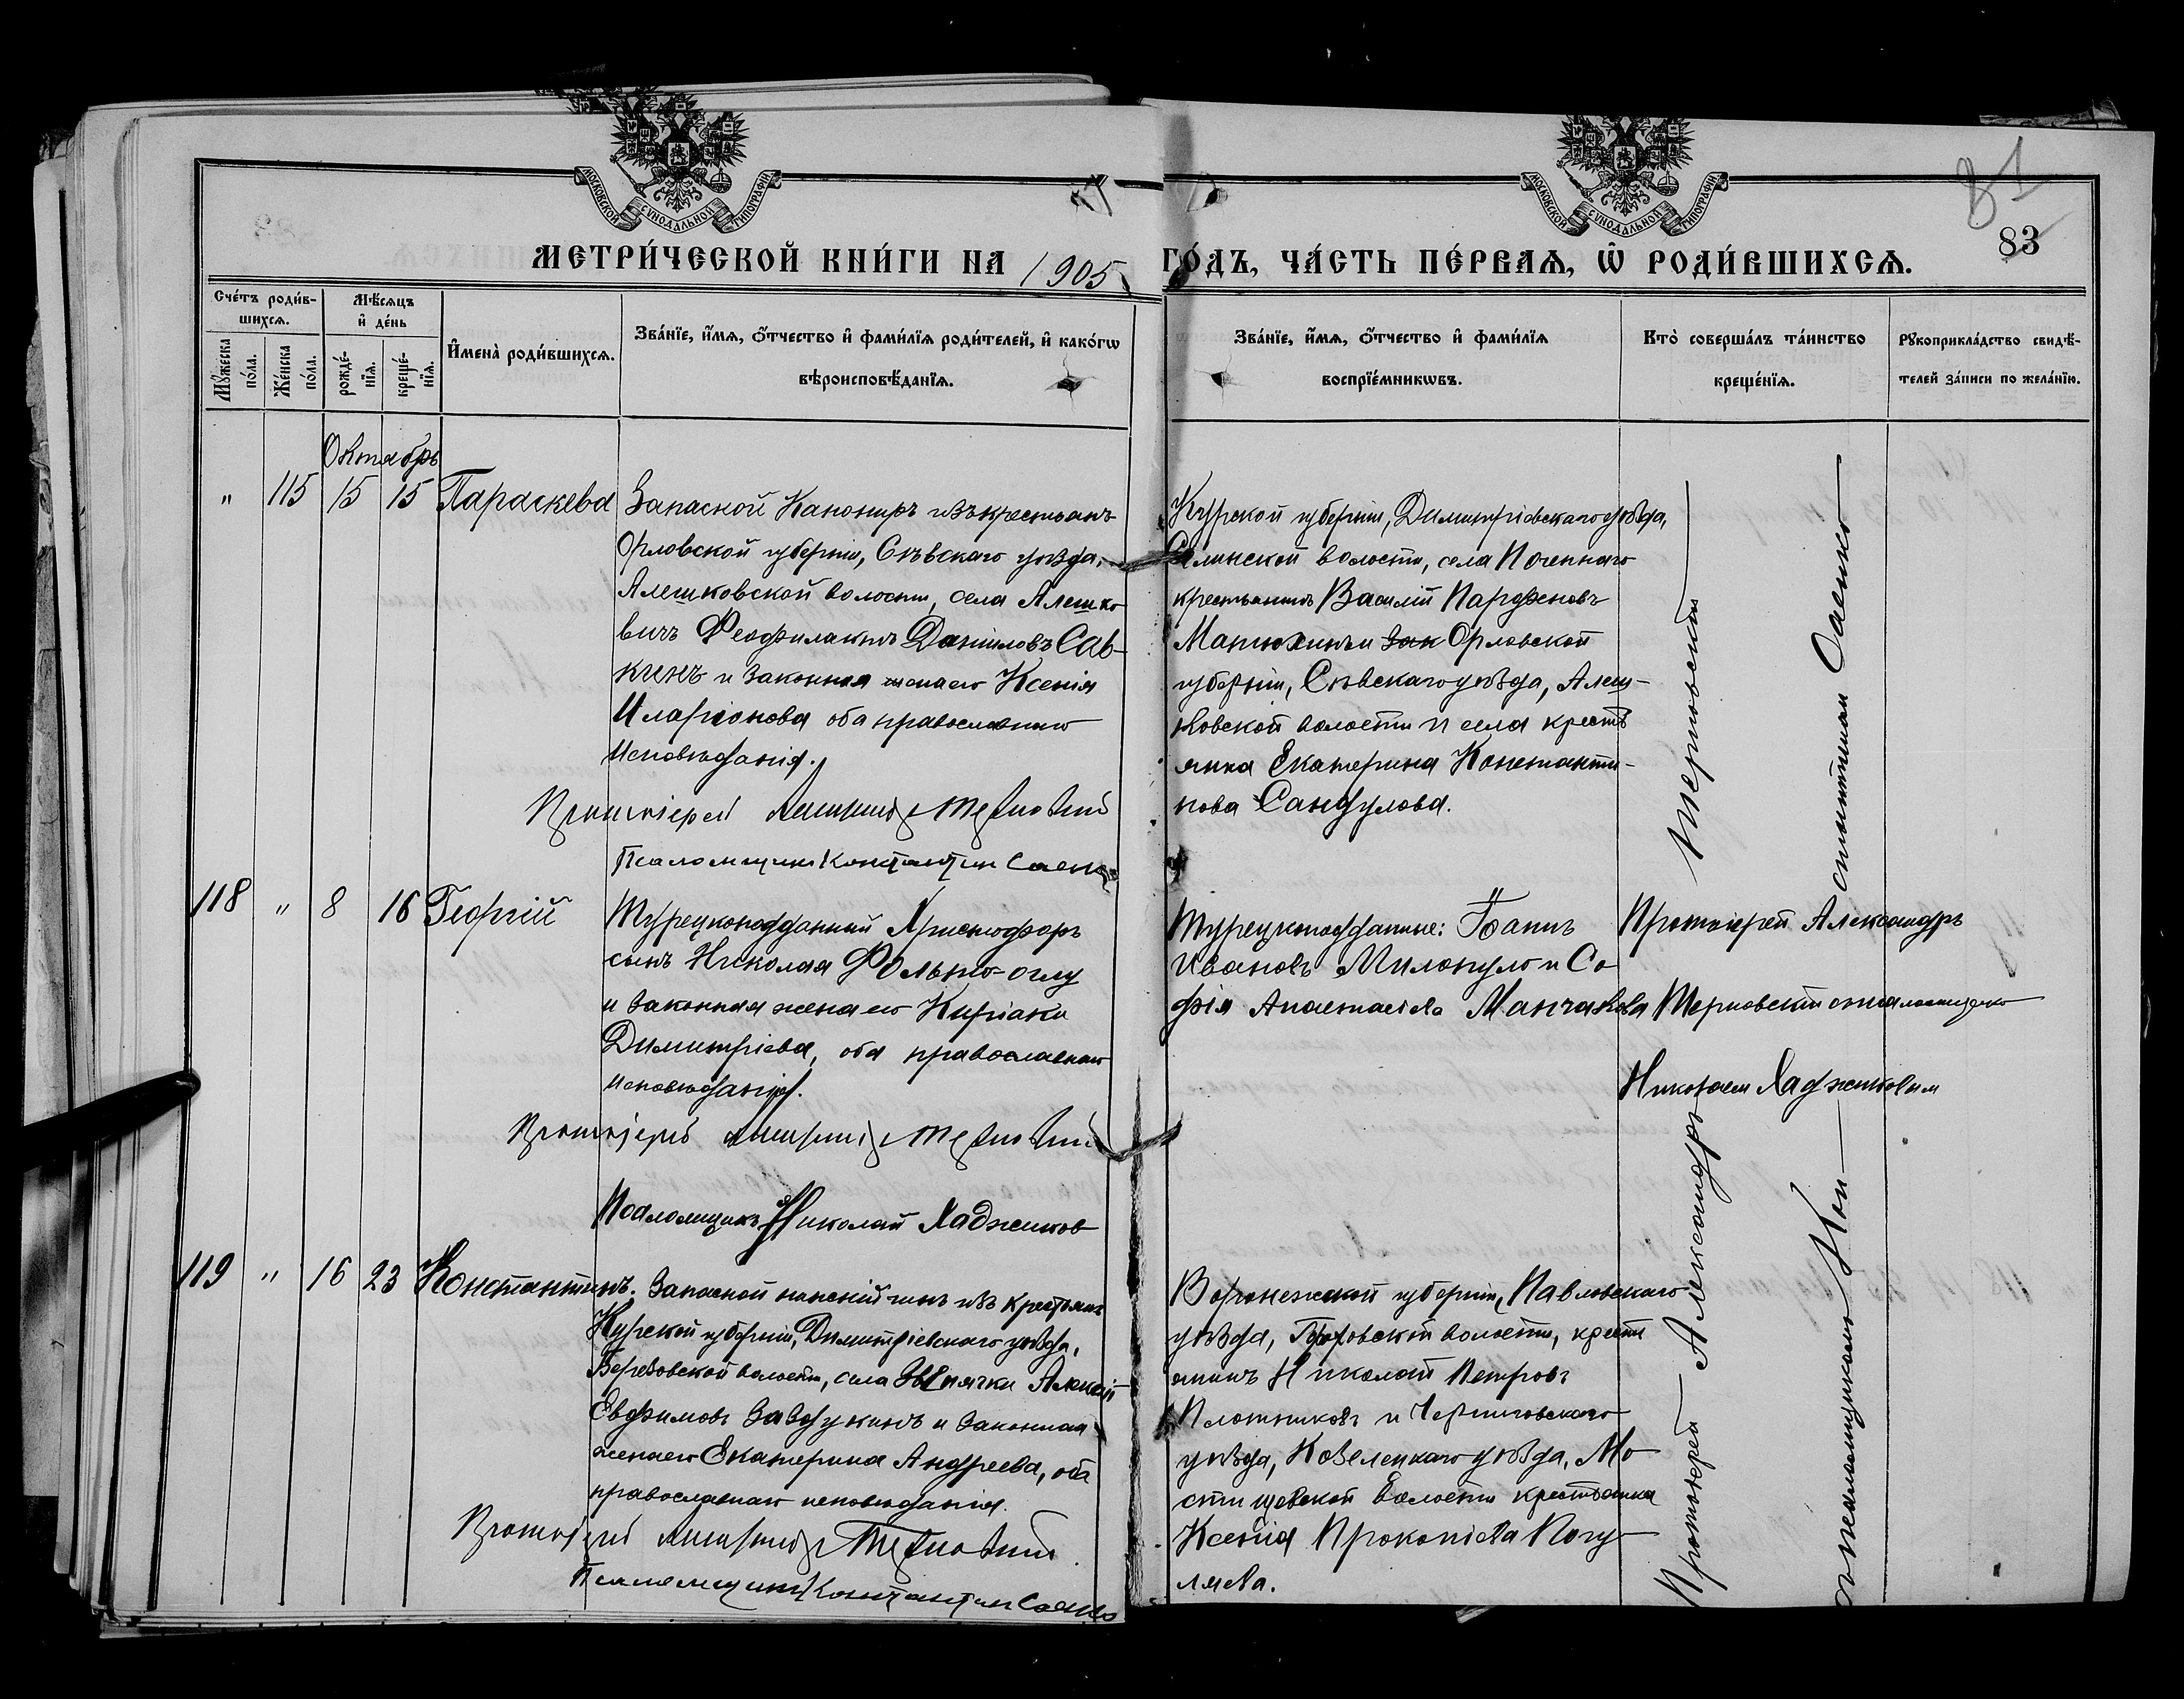 МОСКОВСКОЙ СѴНОДАЛЬНОЙ ТИПОГРАФІИ
МОСКОВСКОЙ СѴНОДАЛЬНОЙ ТИПОГРАФІИ
81
83
МЕТРИ́ЧЕСКОЙ КНИ́ГИ НА 1905 ГО́ДЪ, ЧА́СТЬ ПЕ́РВАѦ, Ѡ҆ РОДИ́ВШИХСѦ.
Сче́тъ роди́в-
шихсѧ.
Мѹ́жеска по́ла.
Же́нска по́ла.
Мѣ́сѧцъ
и҆ де́нь
рожде́-
нїѧ.
креще́-
нїѧ.
И҆мена̀ роди́вшихсѧ.
Зва́нїе, и҆́мѧ, ѻ҆́тчество и҆ фами́лїѧ роди́телей, и҆ како́гѡ
вѣроисповѣ́данїѧ.
Зва́нїе, и҆́мѧ, ѻ҆́тчество и҆ фами́лїѧ
воспрїе́мникѡвъ.
Кто̀ соверша́лъ та́инство
креще́нїѧ.
Рѹкоприкла́дство свидѣ́-
телей за́писи по жела́нїю.
Октябрь
" 115 15 15 Параскева
Запасной Канониръ изъ крестьянъ
Орловской губерніи, Сѣвскаго уѣзда,
Алешковской волости, села Алешко
вичъ Феофилактъ Даниловъ Сав-
кинъ и законная жена его Ксенія
Иларіонова оба православнаго
исповѣданія.
Протоіерей Александръ Терновскій
Псаломщикъ Константин Саенко
Курской губерніи, Димитріевскаго уѣзда,
волости, села
крестьянинъ Василій Парфеновъ
Матюхинъ и зак Орловской
губерніи, Сѣвскаго уѣзда, Алеш-
ковской волости и села кресть
янка Екатерина Константи-
нова Сандулова.
118 " 8 16 Георгій
Турецкоподданный Христофоръ
сынъ Николая Фолько-оглу
и законная жена его Киріаки
Димитріева, оба православнаго
исповѣданія.
Протоіерей Александръ Терновскій
Псаломщикъ Николай Хаджинов
Турецкоподданные:
Ивановъ Милопуло и Со
фія Анастасіева Манчакова
Протоіерей Александръ
Терновскій съ псаломщикомъ
Николаем Хаджиновым
119 " 16 23 Константинъ.
Запасной нижній чинъ изъ крестьянъ
Курской губерніи, Димитріевскаго уѣзда,
Березовской волости, села Звенячки Алексѣй
Евфимовъ и законная
жена его Екатерина Андреева, оба
православнаго исповѣданія.
Протоіерей Александръ Терновскій
Псаломщикъ Константин Саенко
Воронежской губерніи, Павловскаго
уѣзда, волости, кресть
янинъ Николай Петровъ
Плотниковъ и Черниговскаго
уѣзда, Козелецкаго уѣзда, Мо
стищевской волости крестьянка
Ксенія Прокопіева Погу-
ляева.
Протоіерей Александръ Терновскій
съ псаломщикомъ Константином Саенко